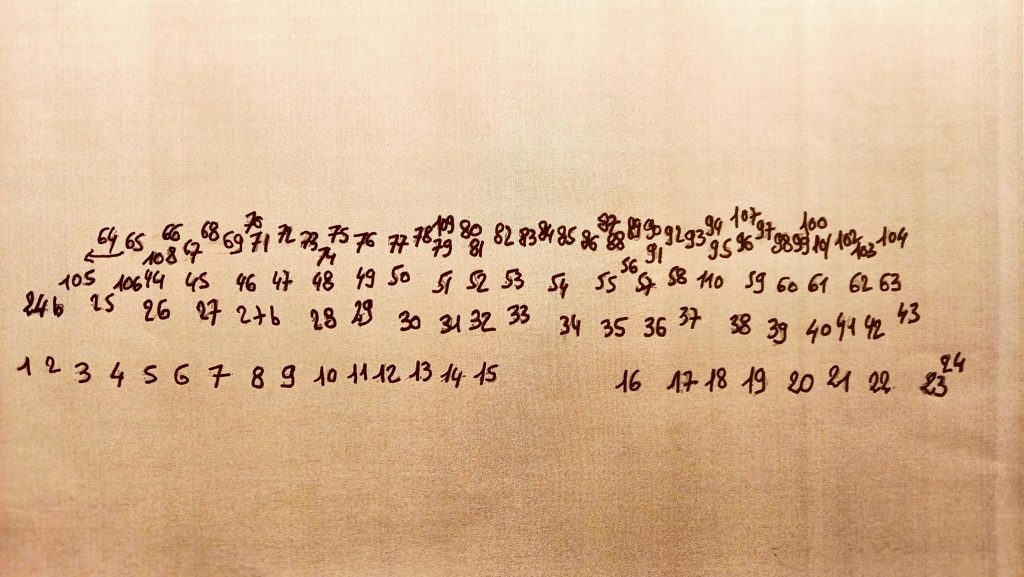 64 65 66 108 67 68 69 70 71 72 73 74 75 76 77 78 109 79 80 81 82 83 84 85 86 87 88 89 90 91 92 93 94 95 107 96 97 98 99 100 101 102 103 104
105 106 44 45 46 47 48 49 50 51 52 53 54 55 56 57 58 110 59 60 61 62 63
24b 25 26 27 27b 28 29 30 31 32 33 34 35 36 37 38 39 40 41 42 43
1 2 3 4 5 6 7 8 9 10 11 12 13 14 15 16 17 18 19 20 21 22 23 24